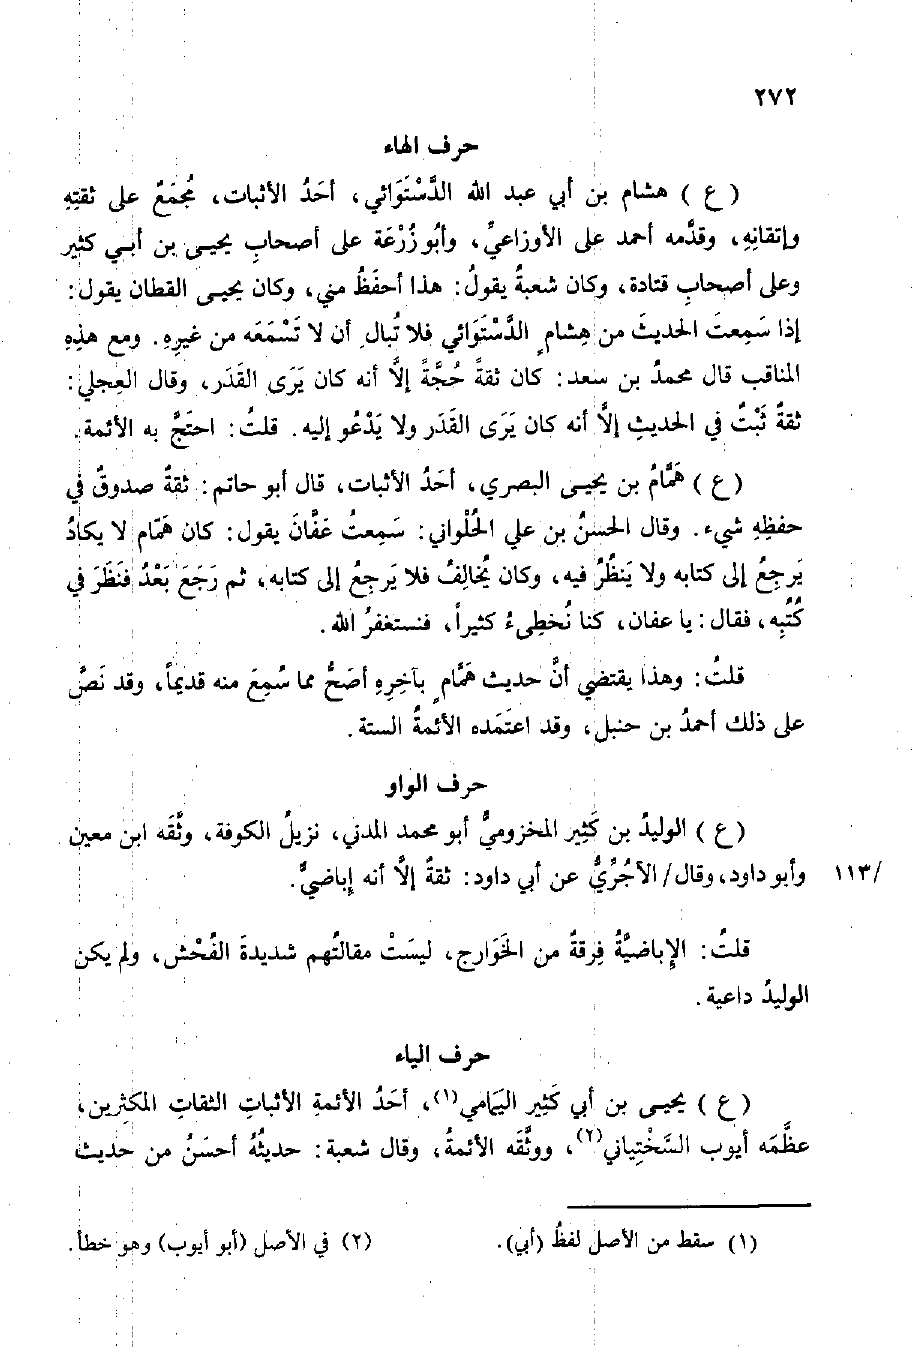 ٢٧٢
حرف الهاء
(ع) هشام بن أبي عبد الله الدَّسْتَوَائي، أحَدُ الأثبات، مُجمَعٌ على ثقتِهِ
وإتقانِهِ، وقدَّمه أحمد على الأوزاعيِّ، وأبُو زُرْعَة على أصحابِ يحيى بن أبي كثير
وعلى أصحابِ قتادة، وكان شعبةُ يقولُ: هذا أحفَظُ مني، وكان يحيى القطان يقول:
إذا سَمِعتَ الحديثَ من هِشامٍ الدَّسْتَوَائي فلا تُبالِ أن لا تَسْمَعَه من غيرِهِ. ومع هذِهِ
المناقب قال محمدُ بن سعد: كان ثقةً حُجَّةً إلَّا أنه كان يَرَى القَدَر، وقال العِجلي:
ثقةٌ ثَبْتٌ في الحديثِ إلَّا أنه كان يَرَى القَدَر ولا يَدْعُو إليه. قلتُ: احتَجَّ به الأئمة.
(ع) هَمَّامُ بن يحيى البصري، أحَدُ الأثبات، قال أبو حاتم: ثقةٌ صدوقٌ في
حفظِهِ شيء. وقال الحسنُ بن علي الحُلْواني: سَمِعتُ عَفَّانَ يقول: كان هَمّام لا يكادُ
يَرجِعُ إلى كتابه ولا يَنظُرُ فيه، وكان يُخالِفُ فلا يَرجِعُ إلى كتابه، ثم رَجَعَ بَعْدُ فنَظَرَ في
كُتُبِه، فقال: يا عفان، كنا نُخطِىءُ كثيراً، فنستغفرُ الله.
قلتُ: وهذا يقتضي أنَّ حديث هَمَّامٍ بآخِرِهِ أصَحُّ مما سُمِعَ منه قديماً، وقد نَصَّ
على ذلك أحمدُ بن حنبل، وقد اعتَمَده الأئمةُ الستة.
حرف الواو
(ع) الوليدُ بن كَثِير المخزوميُّ أبو محمد المدني، نزيلُ الكوفة، وثَّقَه ابن معين
وأبو داود، وقال/ الآجُرِّيُّ عن أبي داود: ثقةٌ إلَّا أنه إباضيٌّ. /١١٣
قلتُ: الإباضيَّةُ فِرقةٌ من الخَوارج، ليسَتْ مقالتُهم شديدةَ الفُحْش، ولم يكن
الوليدُ داعية.
حرف الياء
(ع) يحيى بن أبي كَثِير اليَمامي(١)، أحَدُ الأئمةِ الأثباتِ الثقاتِ المكثِرين،
عظَّمَه أيوب السَّخْتِياني(٢)، ووثَّقَه الأئمةُ، وقال شعبة: حديثُهُ أحسَنُ من حديث
(١) سقط من الأصل لفظُ (أبي).
(٢) في الأصل (أبو أيوب) وهو خطأ.